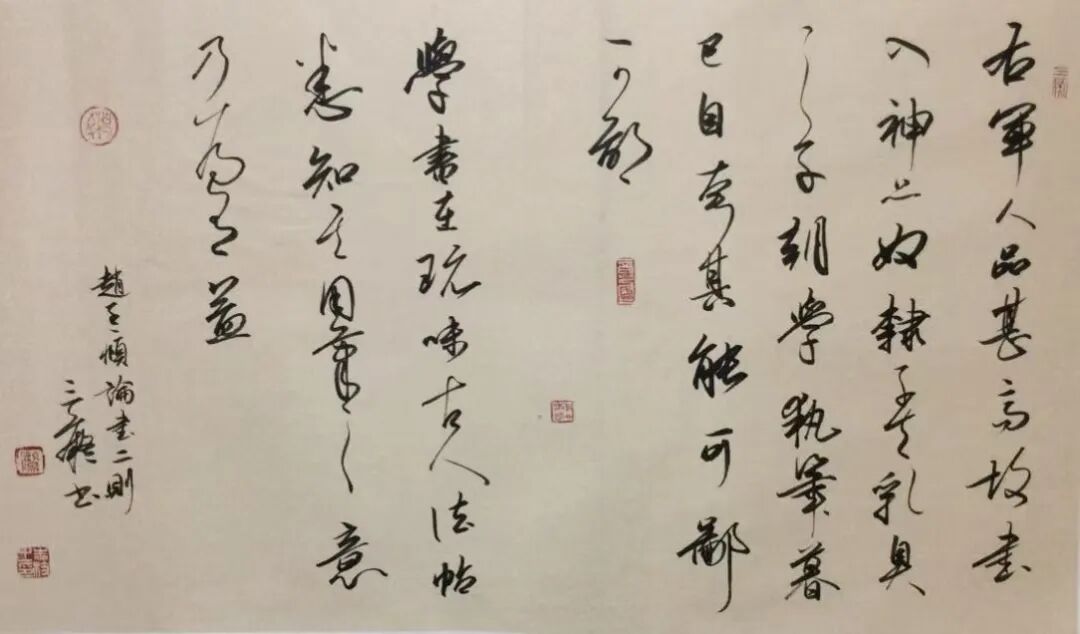 右軍人品甚高故書
入神品奴隸小夫乳臭
之子朝學執筆暮
已自夸其能可鄙
可鄙
學書在玩味古人法帖
悉知其用筆之意
乃為有益
趙孟頫論書二則
三書